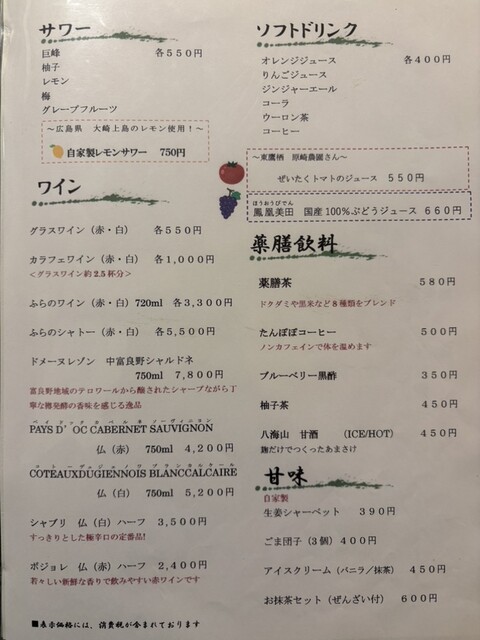 サワー
巨峰 各５５０円
柚子
レモン
梅
グレープフルーツ
～広島県 大崎上島のレモン使用！～
自家製レモンサワー 750円
ワイン
グラスワイン（赤・白） 各５５０円
カラフェワイン（赤・白） 各１,０００円
＜グラスワイン約2.5杯分＞
ふらのワイン（赤・白）720ml 各３,３００円
ふらのシャトー（赤・白） 各５,５００円
ドメーヌレゾン 中富良野シャルドネ
750ml ７,８００円
富良野地域のテロワールから醸されたシャープながら丁
寧な樽発酵の香味を感じる逸品
PAYS D’ OC CABERNET SAUVIGNON
仏（赤） 750ml ４,２００円
COTEAUXDUGIENNOIS BLANCCALCAIRE
仏（白） 750ml ５,２００円
シャブリ 仏（白）ハーフ ３,５００円
すっきりとした極辛口の定番品!
ボジョレ 仏（赤）ハーフ ２,４００円
若々しい新鮮な香りで飲みやすい赤ワインです
■表示価格には、消費税が含まれております
ソフトドリンク
オレンジジュース 各４００円
りんごジュース
ジンジャーエール
コーラ
ウーロン茶
コーヒー
～東鷹栖 原崎農園さん～
ぜいたくトマトのジュース ５５０円
ほうおうびでん
鳳凰美田 国産100％ぶどうジュース ６６０円
薬膳飲料
薬膳茶 ５８０円
ドクダミや黒米など８種類をブレンド
たんぽぽコーヒー ５００円
ノンカフェインで体を温めます
ブルーベリー黒酢 ３５０円
柚子茶 ４５０円
八海山 甘酒 （ICE/HOT） ４５０円
麹だけでつくったあまさけ
甘味
自家製
生姜シャーベット ３９０円
ごま団子（３個）４００円
アイスクリーム（バニラ／抹茶） ４５０円
お抹茶セット（ぜんざい付） ６００円